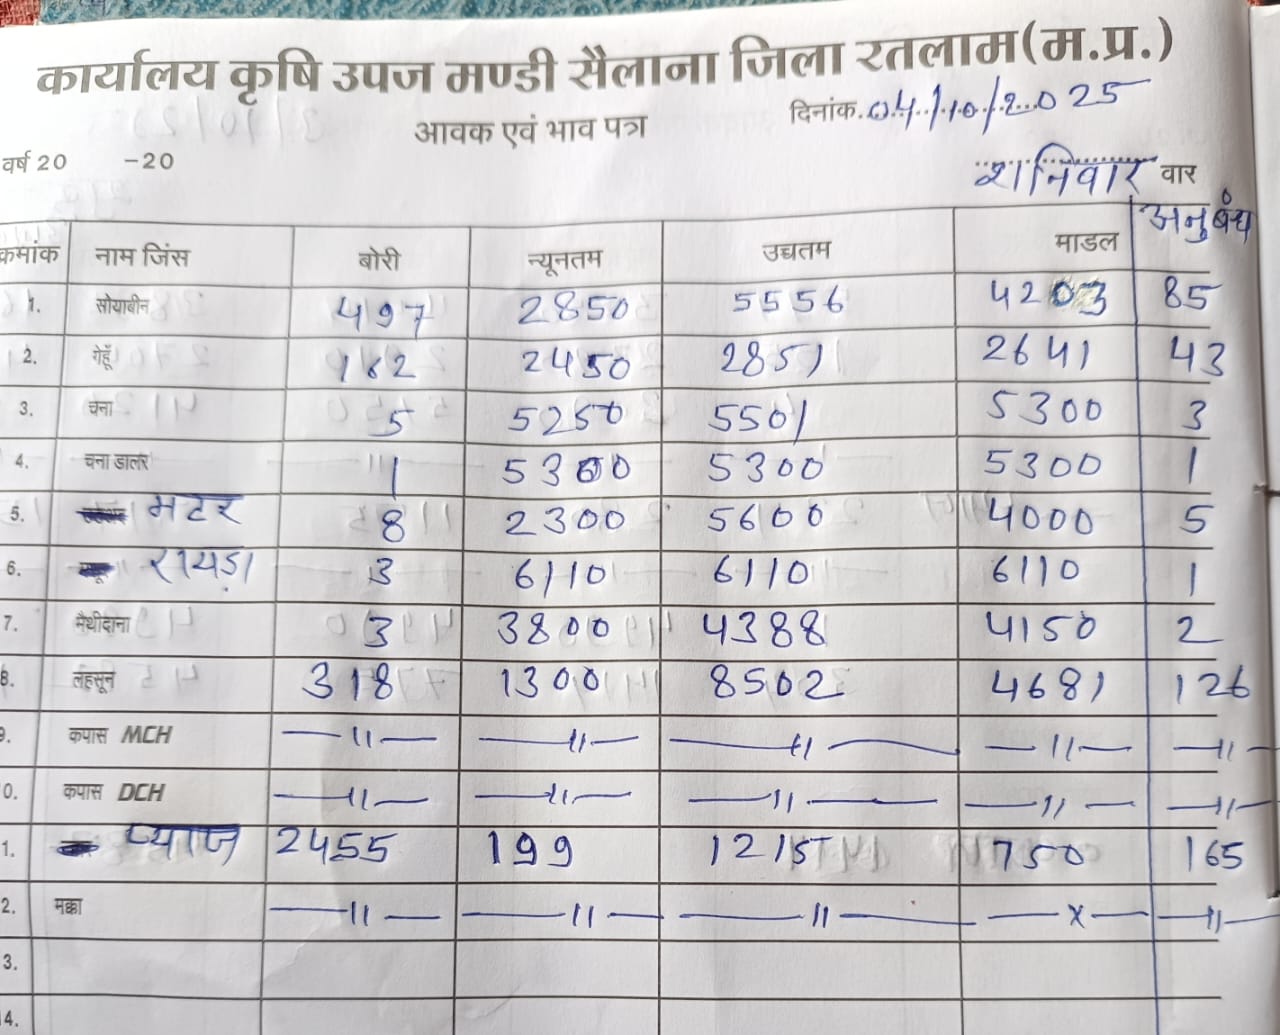 कार्यालय कृषि उपज मण्डी सैलाना जिला रतलाम(म.प्र.)
आवक एवं भाव पत्र
दिनांक.04/10/2025
वर्ष 20 -20
शनिवार वार
क्रमांक नाम जिंस बोरी न्यूनतम उच्चतम माडल अनुबंध
1. सोयाबीन 497 2850 5556 4203 85
2. गेहूँ 182 2450 2851 2641 43
3. चना 5 5250 5501 5300 3
4. चना डालर 1 5300 5300 5300 1
5. मटर 8 2300 5600 4000 5
6. रायड़ा 3 6110 6110 6110 1
7. मैथीदाना 3 3800 4388 4150 2
8. लहसून 318 1300 8502 4681 126
9. कपास MCH —॥— —॥— —॥— —॥— —॥—
0. कपास DCH —॥— —॥— —॥— —॥— —॥—
1. प्याज 2455 199 1215 750 165
2. मक्का —॥— —॥— —॥— —x— —॥—
3.
4.